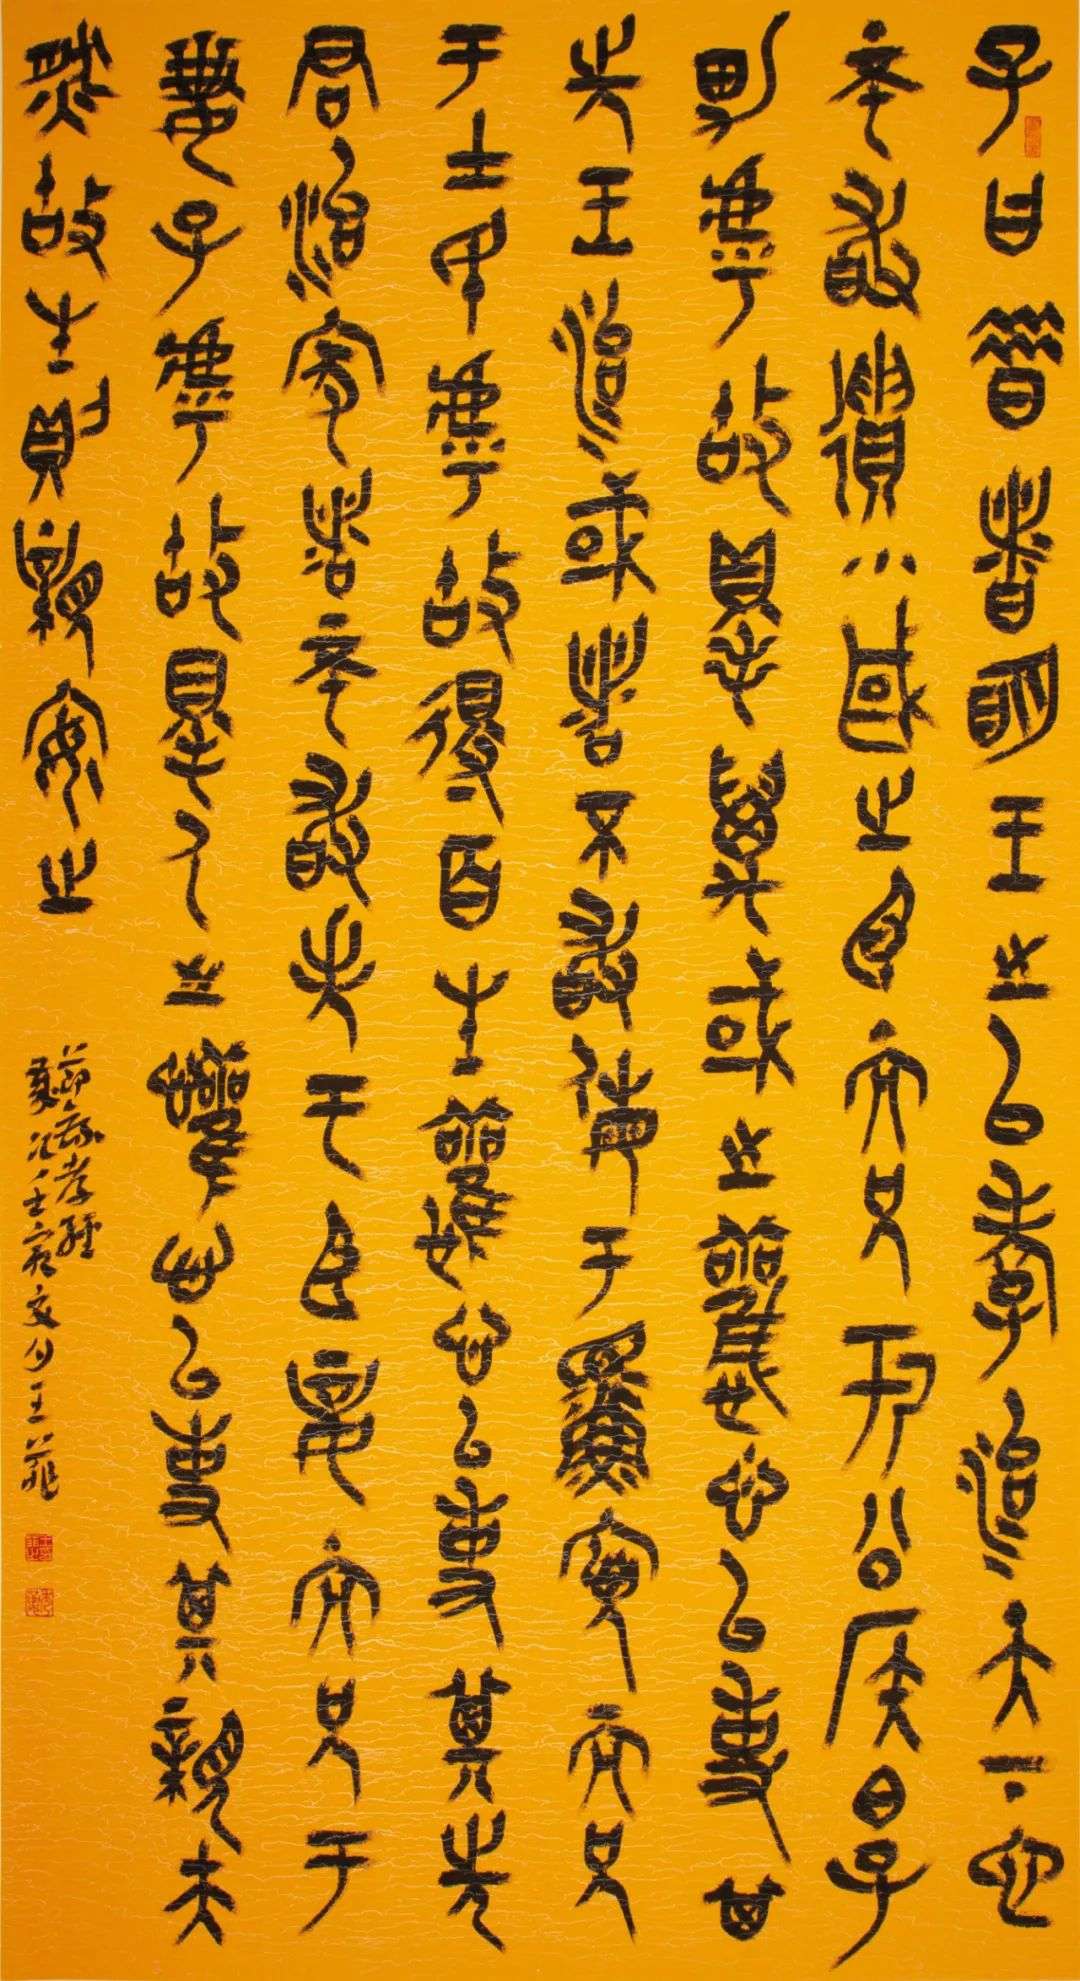 子曰昔者明王之以孝治天下也
不敢遺小國之臣而況於公侯伯子
男乎故得萬國之懽心以事其
先王治國者不敢侮于鰥寡而況
于士民乎故得百姓之懽心以事其先
君治家者不敢失于臣妾而況于
妻子乎故得人之懽心以事其親夫
然故生則親安之
節錄孝經
歲次壬寅